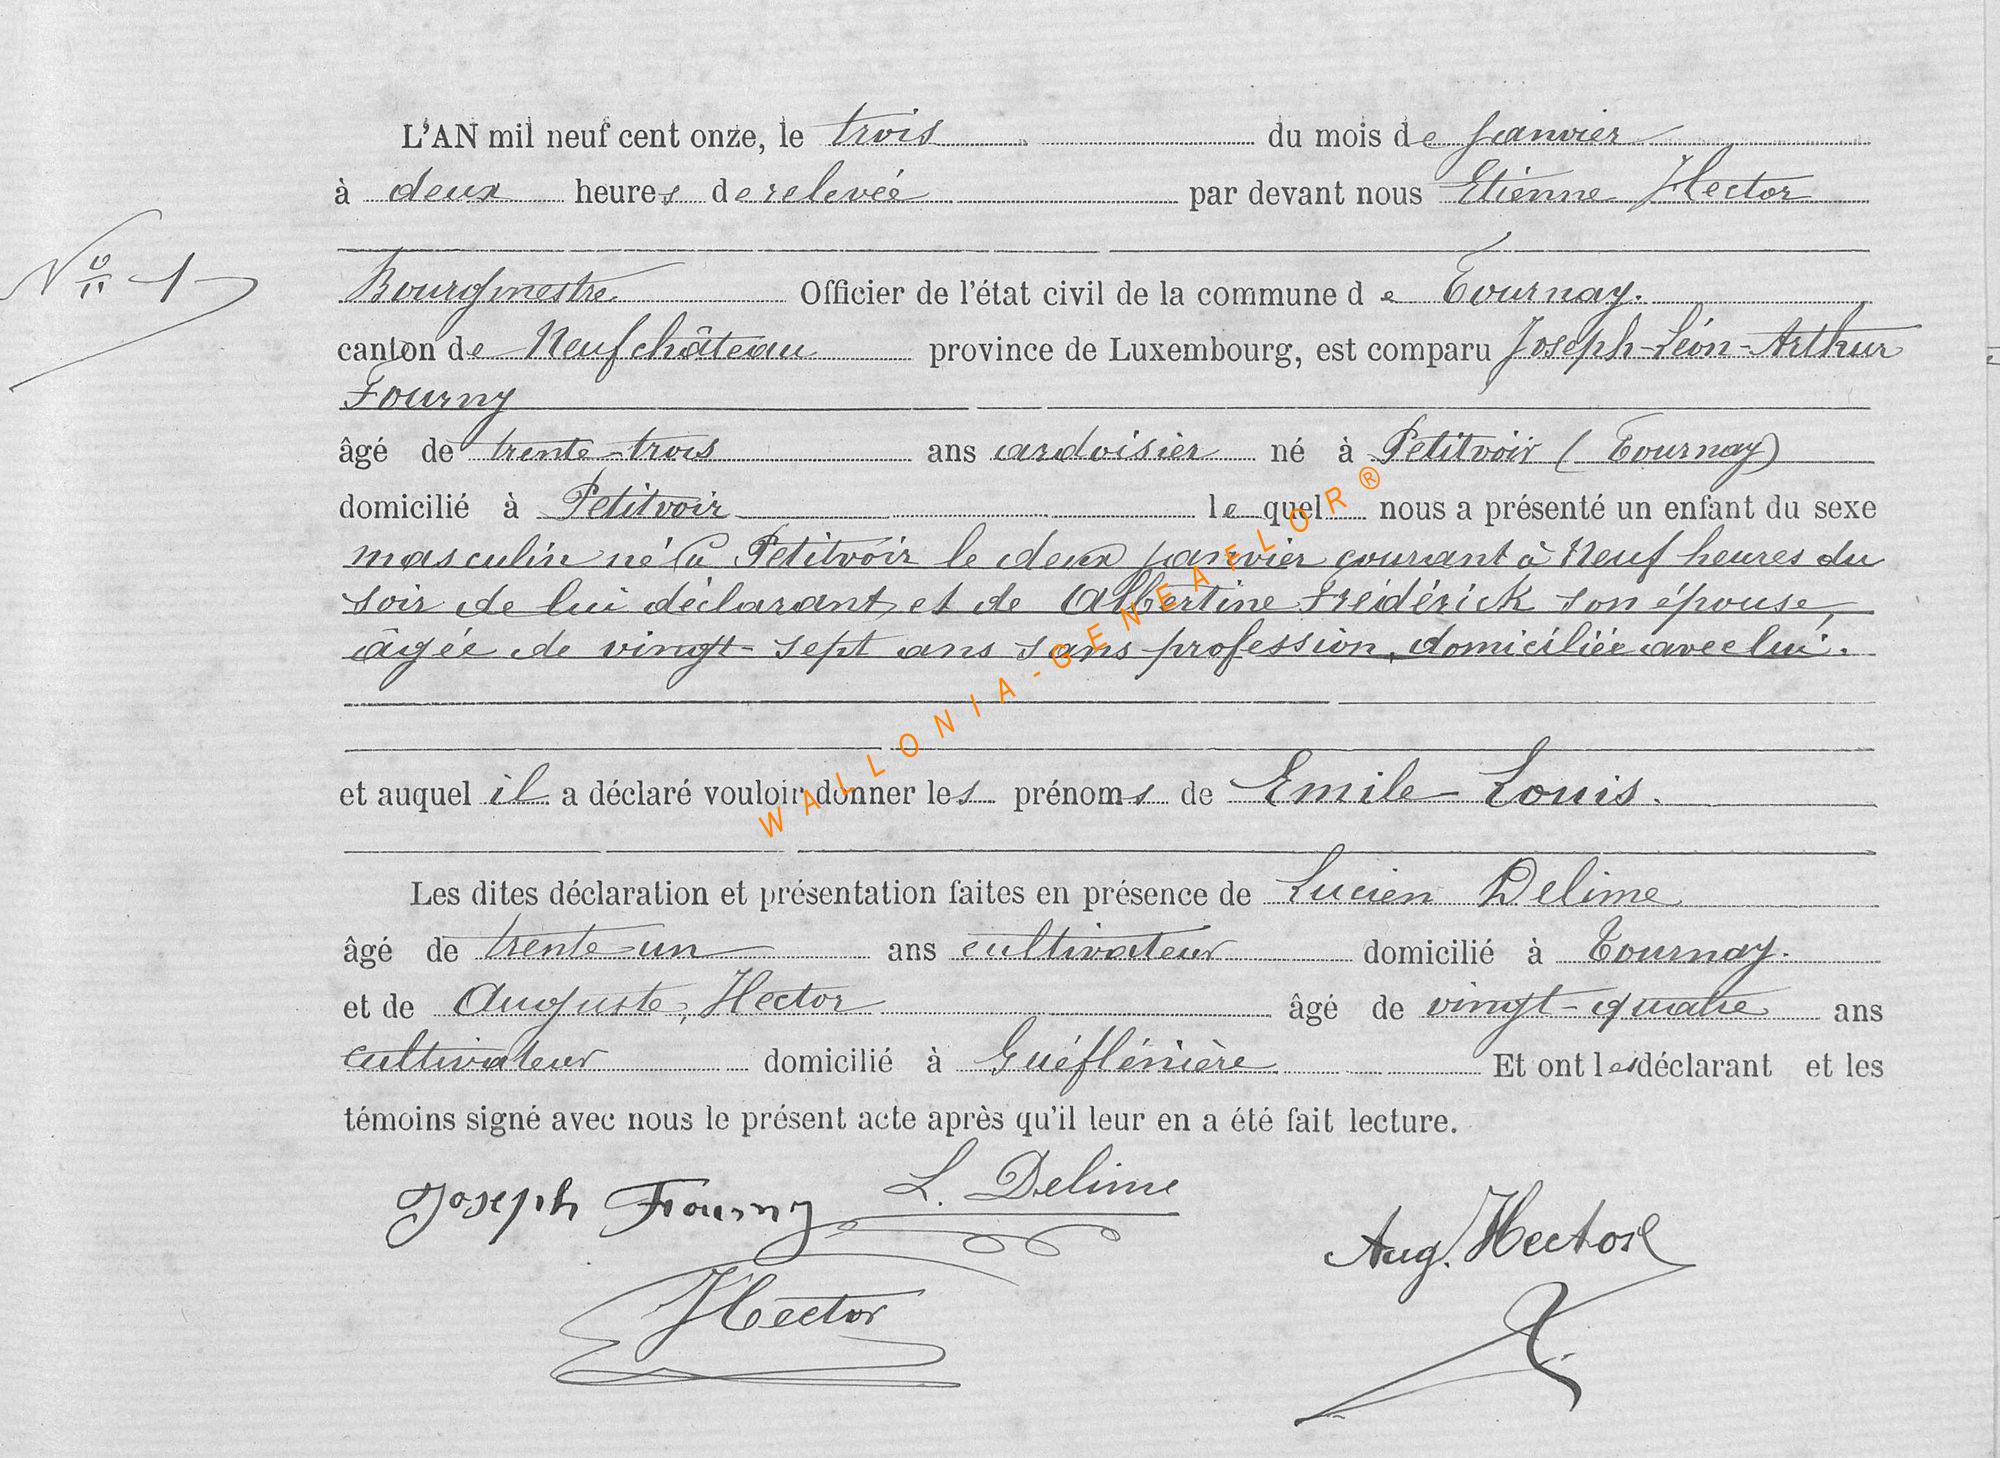 L'AN mil neuf cent onze, le trois du mois de Janvier
à deux heures de relevée par devant nous Etienne Hector
Nº 1
Bourgmestre Officier de l'état civil de la commune de Tournay.
canton de Neufchâteau province de Luxembourg, est comparu Joseph-Léon-Arthur
Fourny
âgé de trente-trois ans ardoisier né à Petitvoir (Tournay)
domicilié à Petitvoir lequel nous a présenté un enfant du sexe
masculin né à Petitvoir le deux janvier courant à Neuf heures du
soir de lui déclarant, et de Albertine Frédérick son épouse,
âgée de vingt-sept ans sans profession, domiciliée avec lui.
et auquel il a déclaré vouloir donner les prénoms de Emile Louis.
Les dites déclaration et présentation faites en présence de Lucien Delime
âgé de trente-un ans cultivateur domicilié à Tournay.
et de Auguste, Hector âgé de vingt-quatre ans
cultivateur domicilié à Guéflénière Et ont les déclarant et les
témoins signé avec nous le présent acte après qu'il leur en a été fait lecture.
Joseph Fourny L. Delime
Aug. Hector
Hector
WALLONIA-GENEAFLOR®